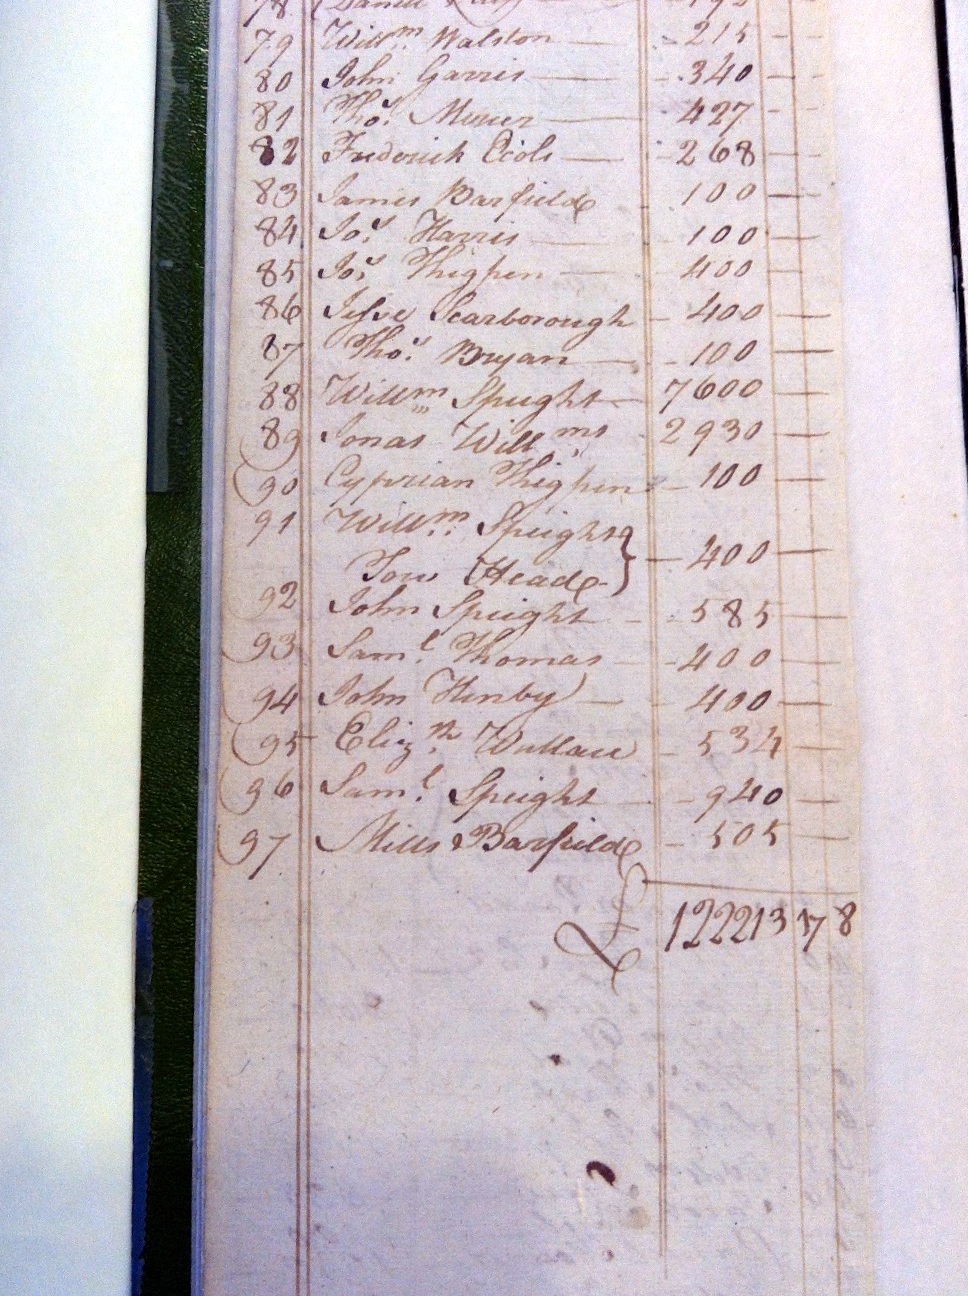 78 Daniel
79 Willm. Walston — 215 - -
80 John Garris — 340 — -
81 Thos. Mercer — 427 -
82 Frederick Ecols — 268 — -
83 James Barfield - 100 — -
84 Jos. Harris — 100 —
85 Jos. Thigpen — 400 —
86 Jesse Scarborough - 400 —
87 Thos. Bryan — 100 —
88 Willm. Speight — 7600 —
89 Jonas Willms 2930 —
90 Cyprian Thigpen - 100 —
91 Willm. Speight }
Tow Head } — 400 —
92 John Speight - 585 —
93 Saml. Thomas - 400 —
94 John Hinby — 400 —
95 Elizth. Wallace - 534 —
96 Saml. Speight - 940 —
97 Mills Barfield - 505 —
£ 122213 17 8